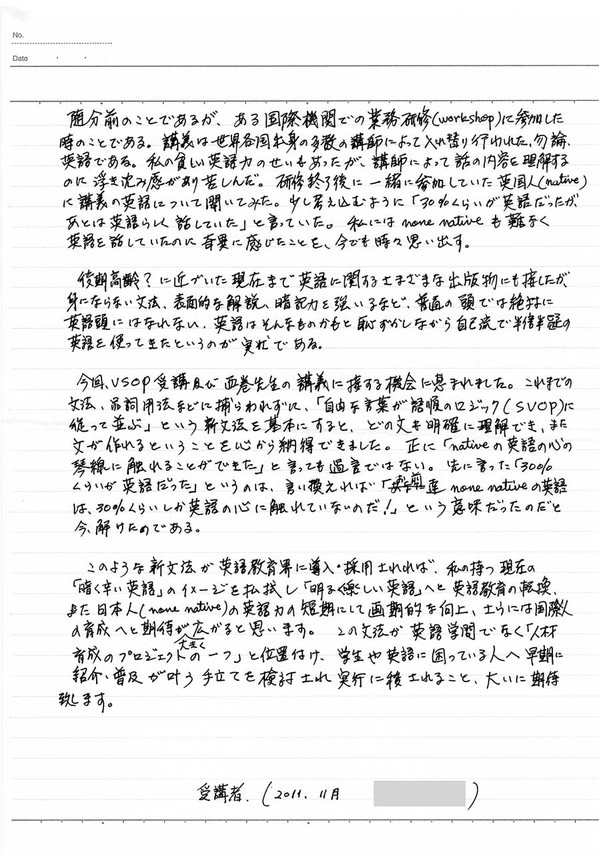 No.
Date
随分前のことであるが、ある国際機関での業務研修(workshop)に参加した
時のことである。講義は世界各国出身の多数の講師によって入れ替り行われた、勿論、
英語である。私の貧しい英語力のせいもあったが、講師によって話の内容を理解する
のに浮き沈み感があり苦しんだ。研修終了後に一緒に参加していた英国人(native)
に講義の英語について聞いてみた。少し考え込むように「30%くらいが英語だったが、
あとは英語らしく話していた」と言っていた。私には none native も難なく
英語を話していたのに奇異に感じたことを、今でも時々思い出す。
後期高齢？に近づいた現在まで英語に関するさまざまな出版物にも接したが、
身にならない文法、表面的な解説、暗記力を強いるなど、普通の頭では絶対に
英語頭にはなれない、英語はそんなものかもと恥ずかしながら自己流で半信半疑の
英語を使って来たというのが実状である。
今回、VSOP受講及び西巻先生の講義に接する機会に恵まれました。これまでの
文法、品詞用法などに捕らわれずに、「自由な言葉が語順のロジック(SVOP)に
従って並ぶ」という新文法を基本にすると、どの文も明確に理解でき、また
文が作れるということを心から納得できました。正に「nativeの英語の心の
琴線に触れることができた」と言っても過言ではない。先に言った「30%
くらいが英語だった」というのは、言い換えれば「 none nativeの英語
は、30%くらいしか英語の心に触れていないのだ！」という意味だったのだと
今、解けたのである。
このような新文法が英語教育界に導入・採用されれば、私の持つ現在の
「暗く辛い英語」のイメージを払拭し「明るく楽しい英語」へと英語教育の転換、
また日本人(none native)の英語力の短期にして画期的な向上、さらには国際人
の育成へと期待が大きく広がると思います。この文法が英語学問でなく「人材
育成のプロジェクトの一つ」と位置付け、学生や英語に困っている人へ早期に
紹介・普及が叶う手立てを検討され実行に移されること、大いに期待
致します。
受講者.(2011. 11月 )